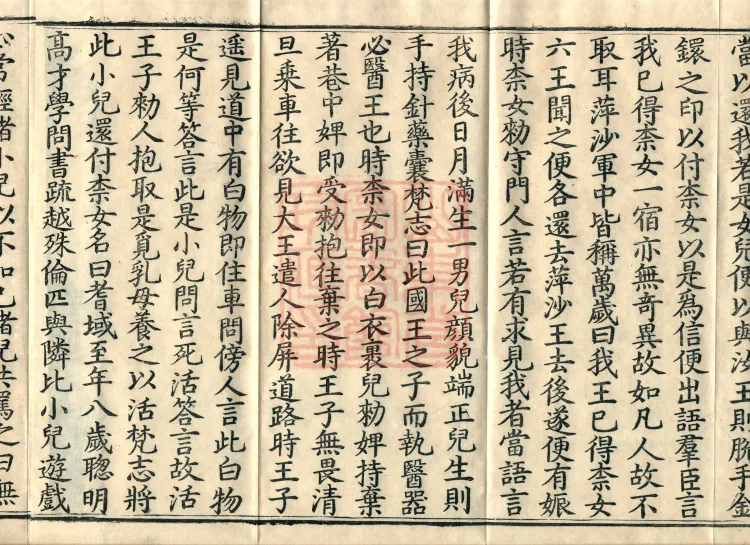 當以還我若是女兒便以與汝王則脫手金
鐶之印以付柰女以是爲信便出語羣臣言
我已得柰女一宿亦無奇異故如凡人故不
取耳萍沙軍中皆稱萬歲曰我王已得柰女
六王聞之便各還去萍沙王去後遂便有娠
時柰女勑守門人言若有求見我者當語言
我病後日月滿生一男兒顏貌端正兒生則
手持針藥囊梵志曰此國王之子而執醫器
必醫王也時柰女即以白衣裹兒勑婢持棄
著巷中婢即受勑抱往棄之時王子無畏清
旦乘車往欲見大王遣人除屏道路時王子
遥見道中有白物即住車問傍人言此白物
是何等答言此是小兒問言死活答言故活
王子勑人抱取是覓乳母養之以活梵志將
此小兒還付柰女名曰耆域至年八歲聰明
高才學問書疏越殊倫匹與隣比小兒遊戲
心常輕諸小兒以不如己諸兒共罵之曰無